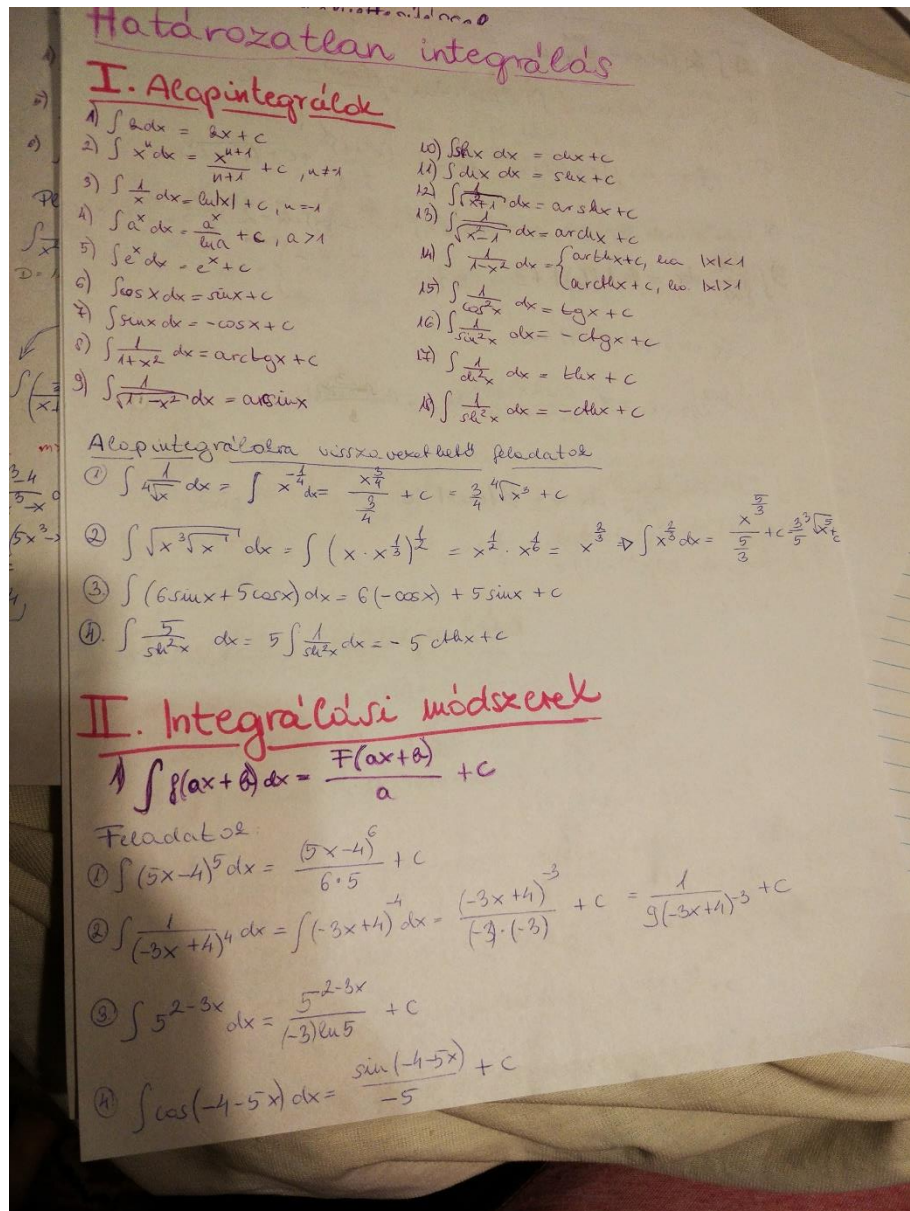 Határozatlan integrálás
I. Alapintegrálok
1) ∫ k dx = kx + c
2) ∫ xⁿ dx = xⁿ⁺¹/(n+1) + c, n≠-1
3) ∫ 1/x dx = ln|x| + c, n=-1
4) ∫ aˣ dx = aˣ/ln a + c, a>1
5) ∫ eˣ dx = eˣ + c
6) ∫cos x dx = sinx + c
7) ∫sinx dx = -cosx + c
8) ∫ 1/(1+x²) dx = arctgx + c
9) ∫ 1/√(1-x²) dx = arcsinx
10) ∫shx dx = chx + c
11) ∫chx dx = shx + c
12) ∫ 1/√(x²+1) dx = arshx + c
13) ∫ 1/√(x²-1) dx = archx + c
14) ∫ 1/(1-x²) dx = { arthx + c, ha |x|<1
arcthx + c, ha |x|>1
15) ∫ 1/cos²x dx = tgx + c
16) ∫ 1/sin²x dx = -ctgx + c
17) ∫ 1/ch²x dx = thx + c
18) ∫ 1/sh²x dx = -cthx + c
Alapintegrálokra visszavezethető feladatok
① ∫ 1/⁴√x dx = ∫ x^(-1/4) dx = x^(3/4)/(3/4) + c = 3/4 ⁴√x³ + c
② ∫ √(x ³√x) dx = ∫ (x · x^(1/3))^(1/2) = x^(1/2) · x^(1/6) = x^(2/3) ⇒ ∫ x^(2/3) dx = x^(5/3)/(5/3) + c = 3/5 ³√x⁵ + c
③. ∫ (6sinx + 5cosx) dx = 6(-cosx) + 5sinx + c
④. ∫ 5/sh²x dx = 5 ∫ 1/sh²x dx = - 5 cthx + c
II. Integrálási módszerek
1) ∫ f(ax+b) dx = F(ax+b)/a + c
Feladatok:
① ∫ (5x-4)⁵ dx = (5x-4)⁶/(6·5) + c
② ∫ 1/(-3x+4)⁴ dx = ∫ (-3x+4)⁻⁴ dx = (-3x+4)⁻³/((-3)·(-3)) + c = 1/(9(-3x+4)⁻³) + c
③. ∫ 5^(2-3x) dx = 5^(2-3x)/((-3)ln5) + c
④. ∫ cos(-4-5x) dx = sin(-4-5x)/(-5) + c